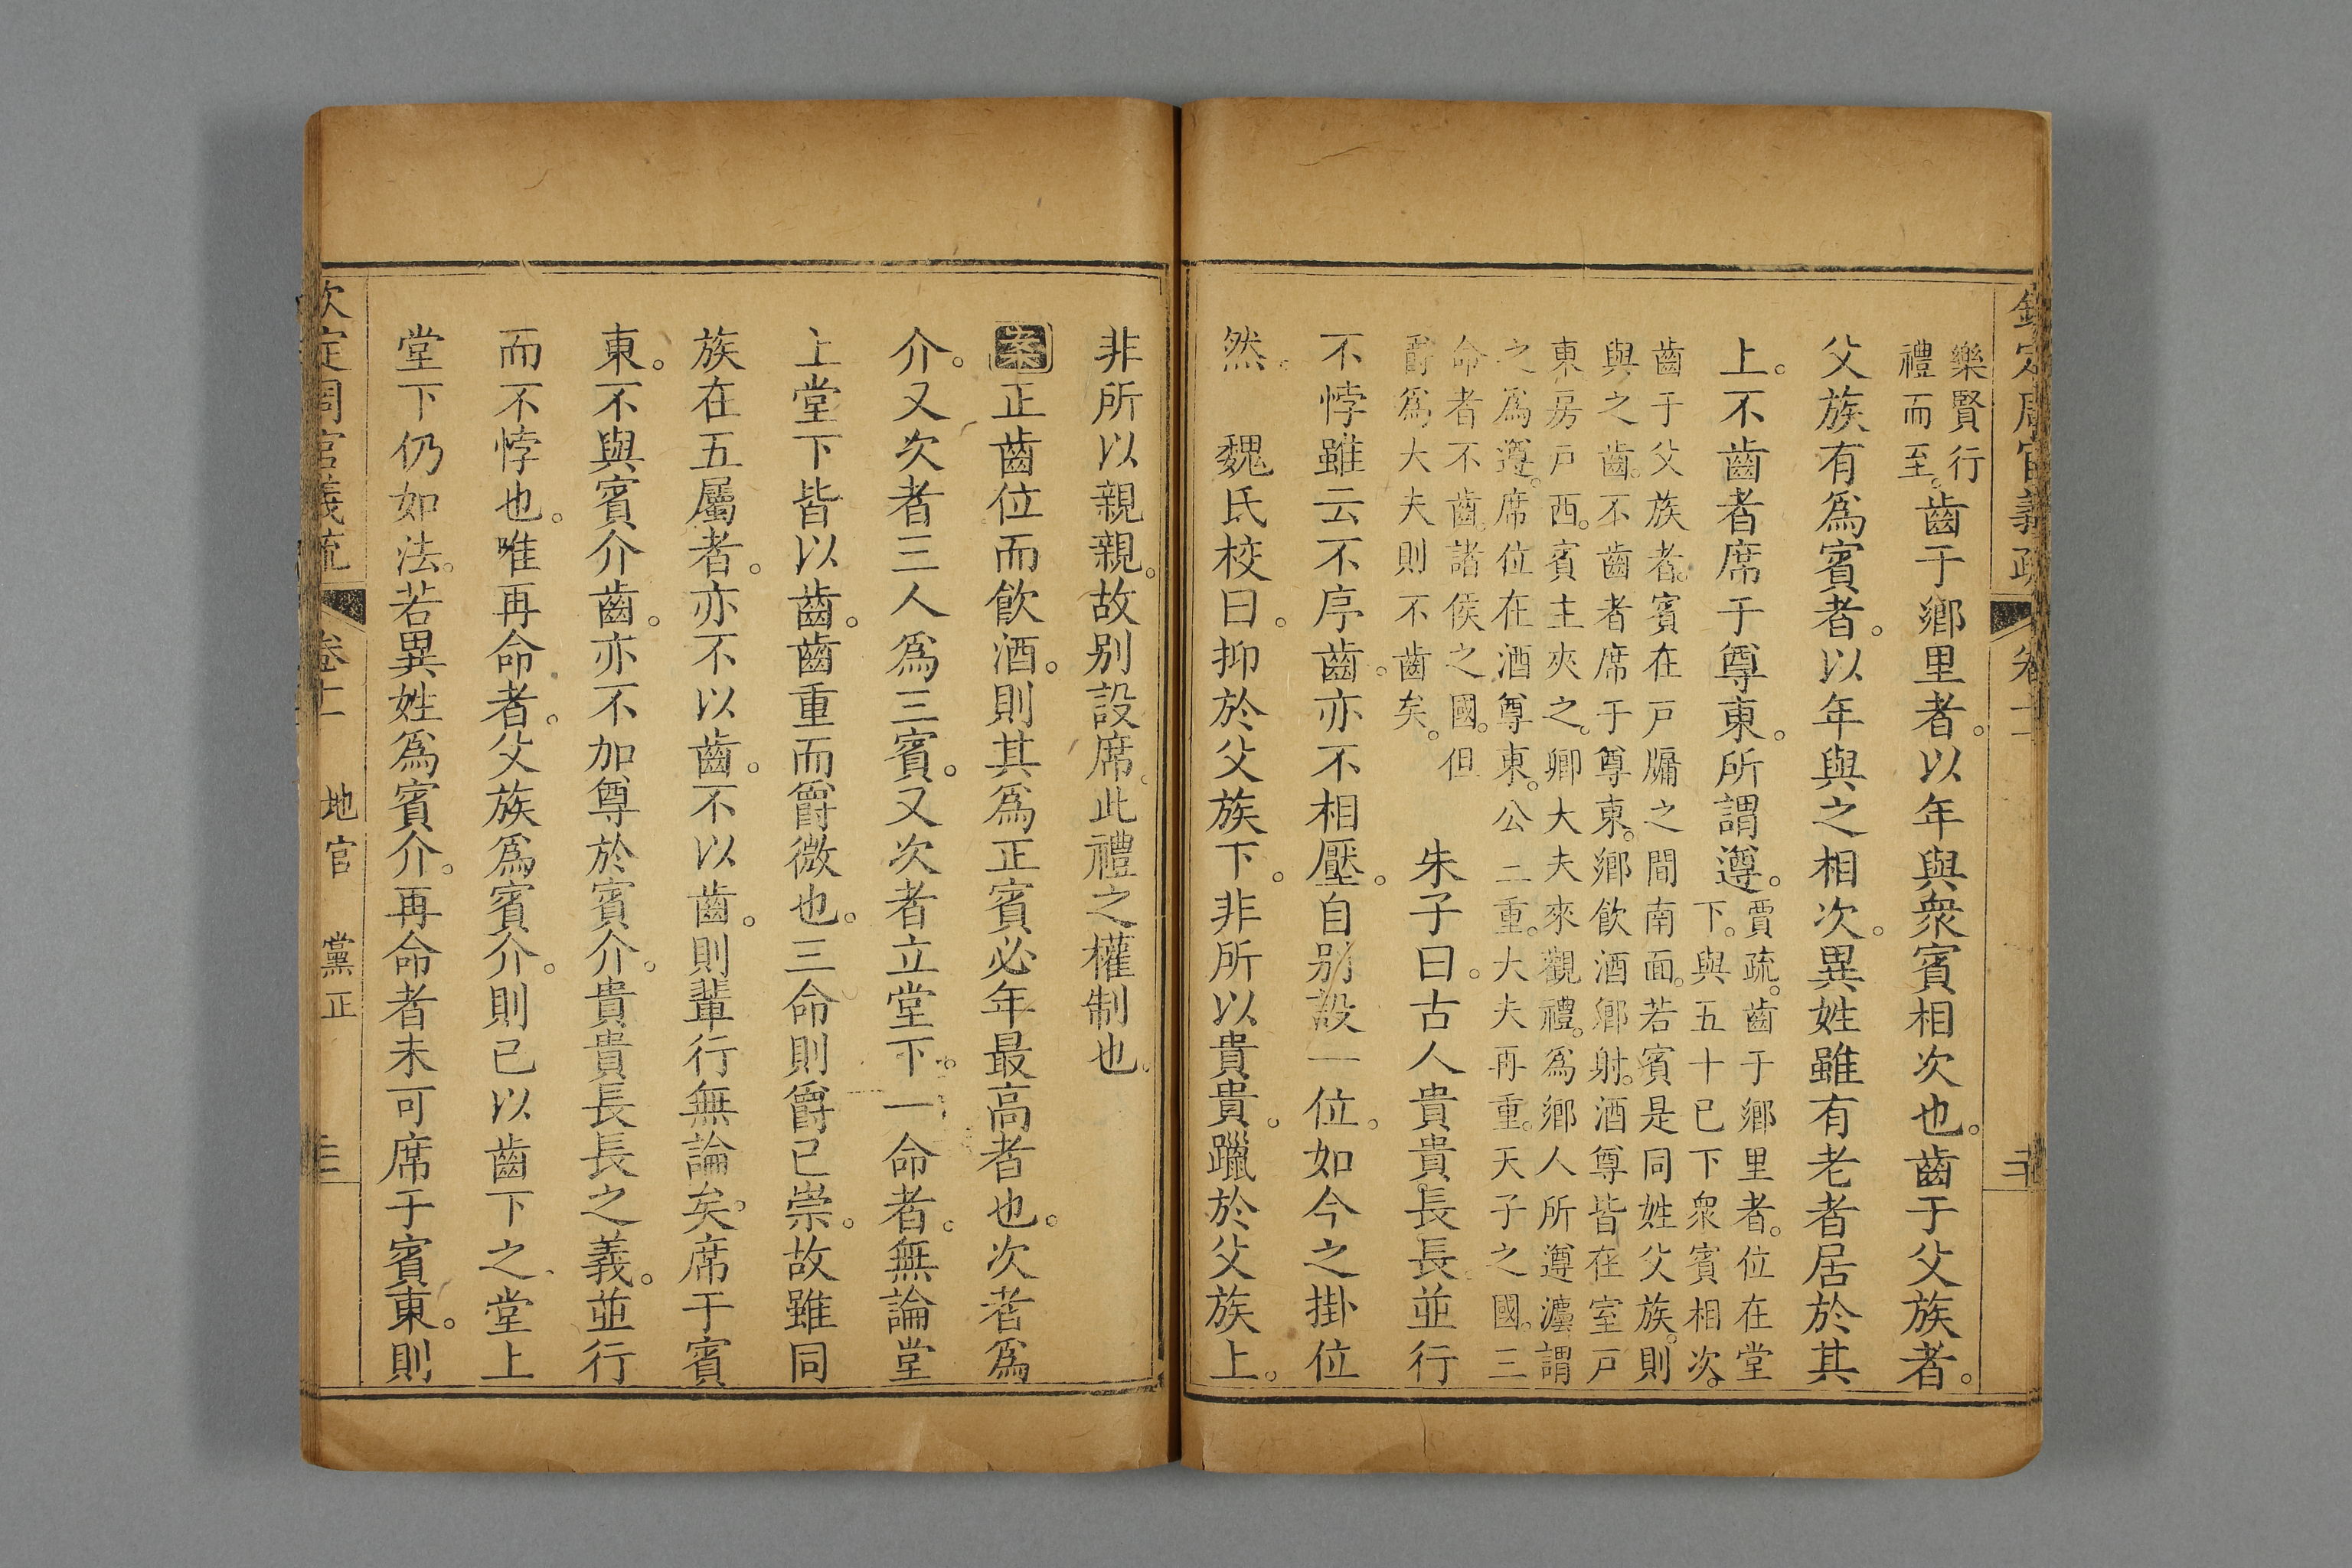 欽定周官義疏 卷十一
樂賢行
禮而至。齒于鄉里者。以年與衆賓相次也。齒于父族者。
父族有爲賓者。以年與之相次。異姓雖有老者居於其
上。不齒者席于尊東。所謂遵。賈疏。齒于鄉里者。位在堂
下。與五十已下衆賓相次。
齒于父族者。賓在戸牖之間南面。若賓是同姓父族。則
與之齒。不齒者席于尊東。鄉飲酒鄉射。酒尊皆在室戸
東房戸西。賓主夾之。卿大夫來觀禮。爲鄉人所遵灋謂
之爲遵。席位在酒尊東。公三重。大夫再重。天子之國。三
命者不齒。諸侯之國。但
爵爲大夫則不齒矣。 朱子曰。古人貴貴長長並行
不悖雖云不序齒。亦不相壓。自别設一位。如今之掛位
然。 魏氏校曰。抑於父族下。非所以貴貴。躐於父族上。
非所以親親。故别設席。此禮之權制也。
案正齒位而飲酒。則其爲正賓必年最高者也。次者爲
介。又次者三人爲三賓。又次者立堂下。一命者。無論堂
上堂下皆以齒。齒重而爵微也。三命則爵已崇。故雖同
族在五屬者。亦不以齒。不以齒。則輩行無論矣。席于賓
東。不與賓介齒。亦不加尊於賓介。貴貴長長之義。並行
而不悖也。唯再命者。父族爲賓介。則已以齒下之堂上
堂下仍如法。若異姓爲賓介。再命者未可席于賓東。則
欽定周官義疏 卷十一 地官 黨正